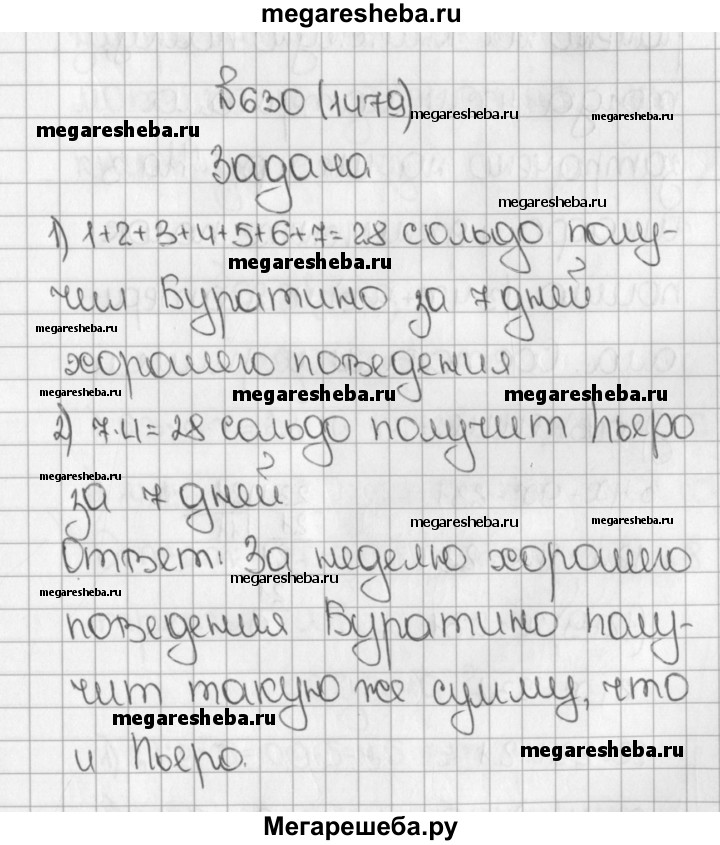 megaresheba.ru
№630 (1479)
megaresheba.ru
megaresheba.ru
Задача
megaresheba.ru
1) 1+2+3+4+5+6+7=28 сольдо полу-
megaresheba.ru
чил Буратино за 7 дней
megaresheba.ru
хорошего поведения
megaresheba.ru
megaresheba.ru
megaresheba.ru
2) 7·4=28 сольдо получит Пьеро
megaresheba.ru
за 7 дней
megaresheba.ru
megaresheba.ru
Ответ: За неделю хорошего
megaresheba.ru
megaresheba.ru
поведения Буратино полу-
чит такую же сумму, что
megaresheba.ru
и Пьеро.
megaresheba.ru
Мегарешеба.ру